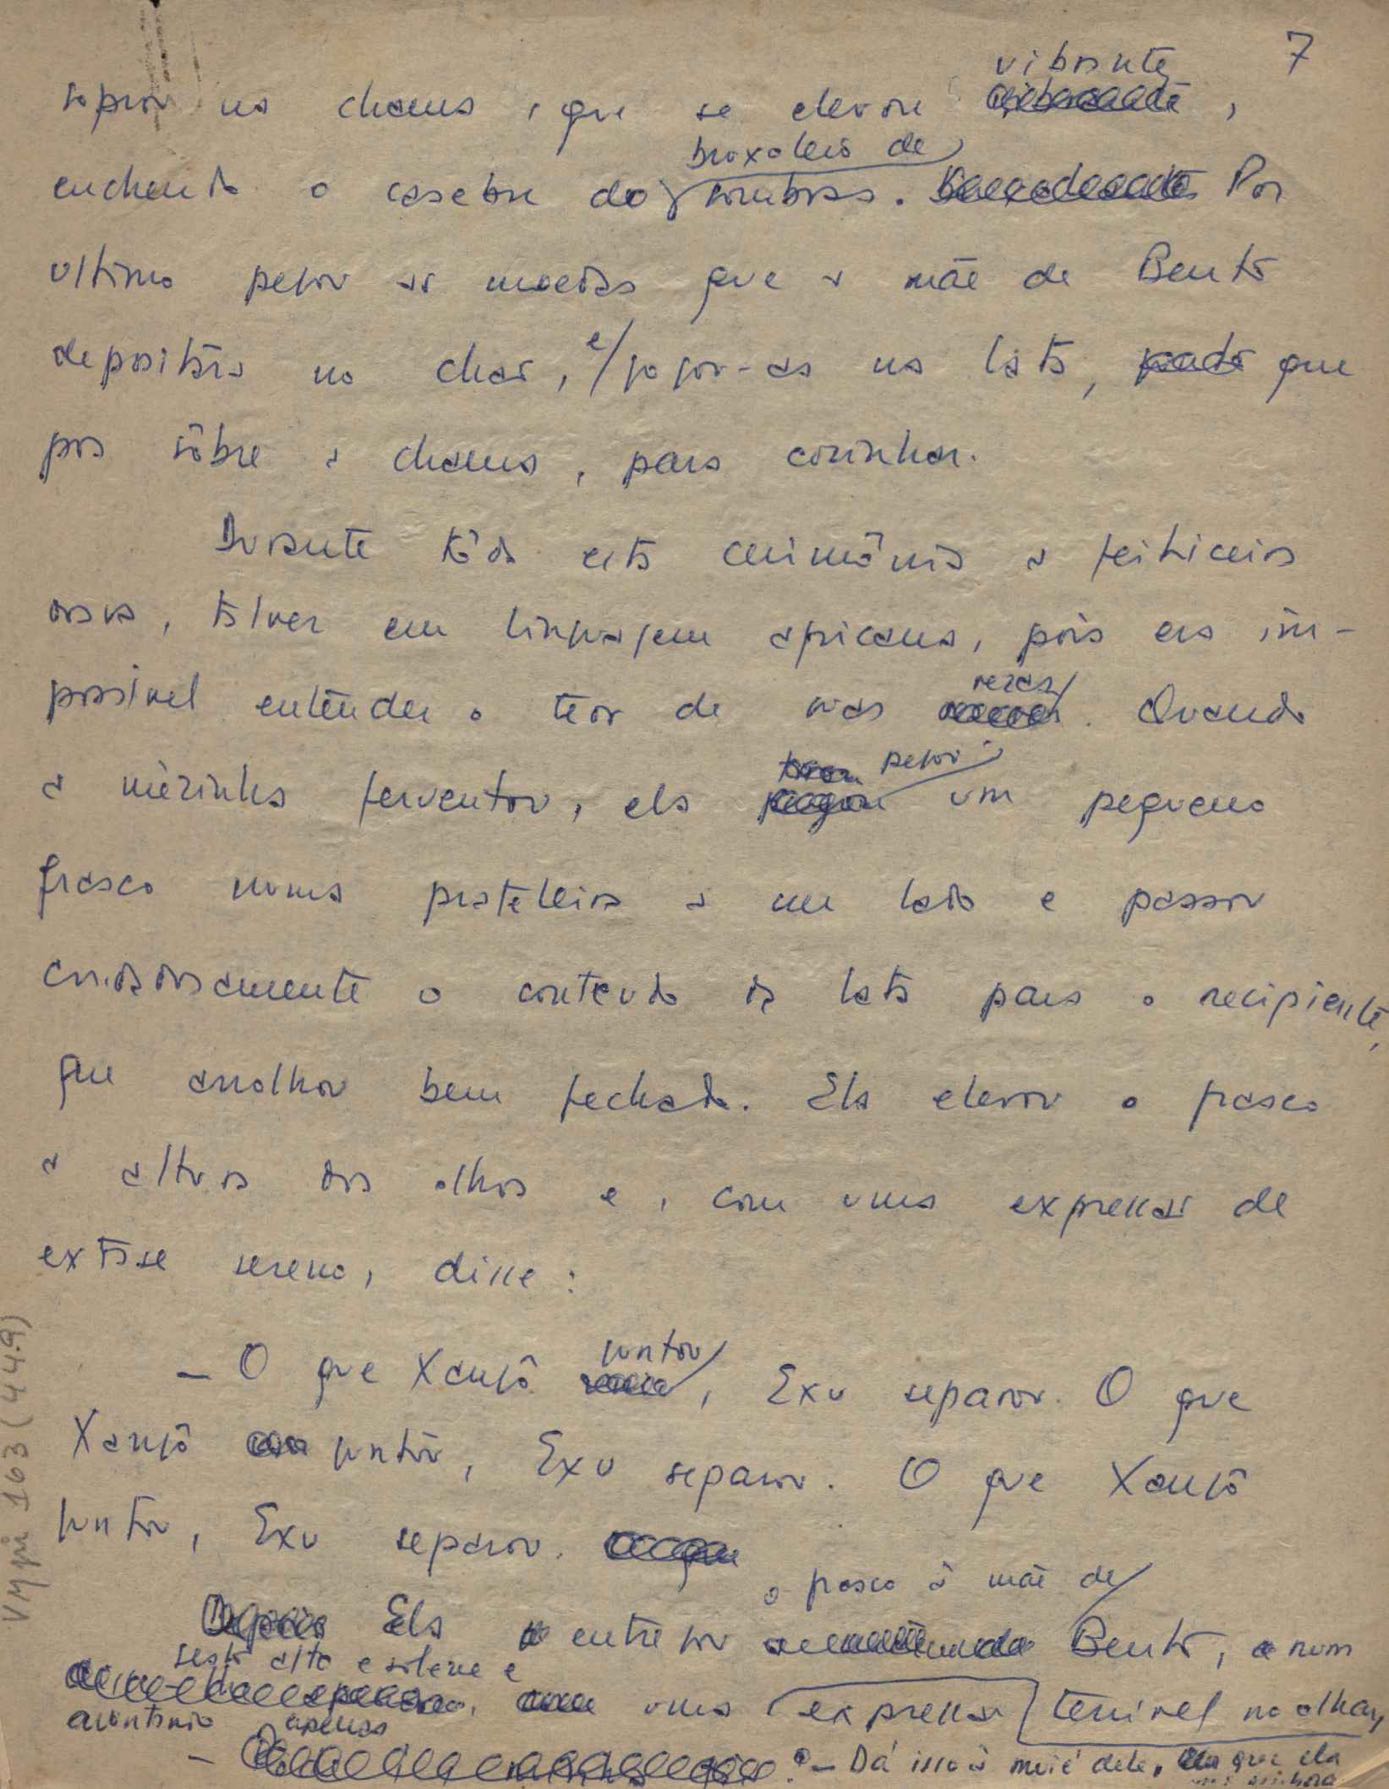 7
soprou na chama, que se elevou vibrante,
enchendo o casebre do bruxoleio de sombras. Por
ultimo pegou as moedas que a mãe de Bento
depositára no chão, e jogou-as na lata, que
pos sôbre a chama, para cozinhar.
Durante tôda esta cerimônia a feiticeira
orava, talvez em linguagem africana, pois era im-
possivel entender o teor de suas rezas. Quando
a mèzinha ferventou, ela pegou um pequeno
frasco numa prateleira a um lado e passou
cuidadosamente o conteudo da lata para o recipiente,
que arrolhou bem fechado. Ela elevou o frasco
a altura dos olhos e, com uma expressão de
extase sereno, disse:
— O que Xangô juntou, Exu separou. O que
Xangô juntou, Exu separou. O que Xangô
juntou, Exu separou.
Ela entregou o frasco à mãe de Bento, num
gesto alto e solene e
uma expressão terrivel no olhar,
apenas
— Dá isso à muié dele, que ela
VMpi 163 (449)